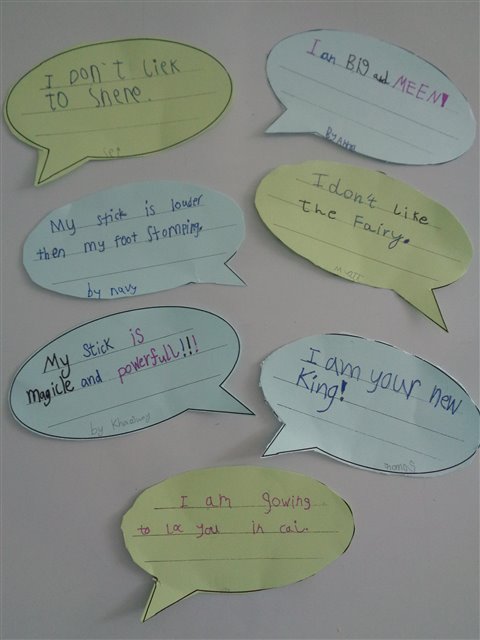 I Don't Liek
to Shere.
I am BIg and MEEN!
My stick is louder
then my foot stomping.
by navy
I don't Like
the Fairy.
My stick is
magicle and powerfull!!!
I am your new
King!
Thomas
I am gowing
to Loc you in cai.